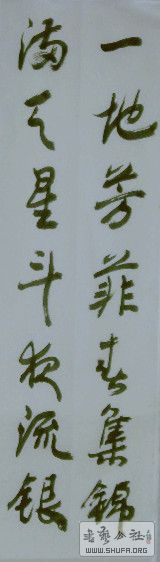 一地芳菲春集锦
满天星斗夜流银
书艺公社
WWW.SHUFA.ORG